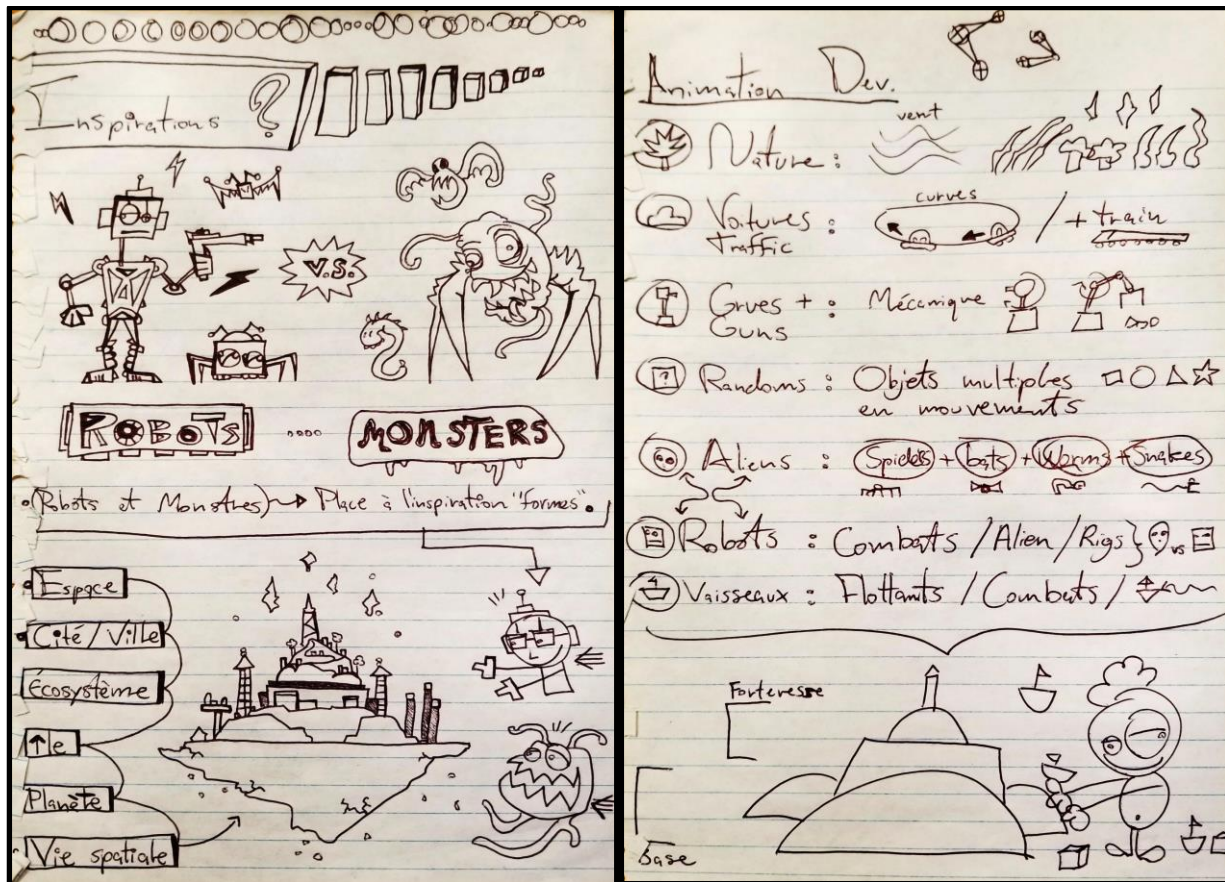 Inspirations ?
V.S.
ROBOTS .... MONSTERS
(Robots et Monstres) → Place à l'inspiration "formes".
Espace
Cité/Ville
Ecosystème
Planète
Vie spatiale
Animation Dev.
vent
Nature :
curves
Voitures : / + train
traffic
Grues + : Mécanique
Guns
? Randoms : Objets multiples
en mouvements
Aliens : Spiders + bats + Worms + Snakes
Robots : Combats / Alien / Rigs } vs
Vaisseaux : Flottants / Combats /
Forteresse
Base